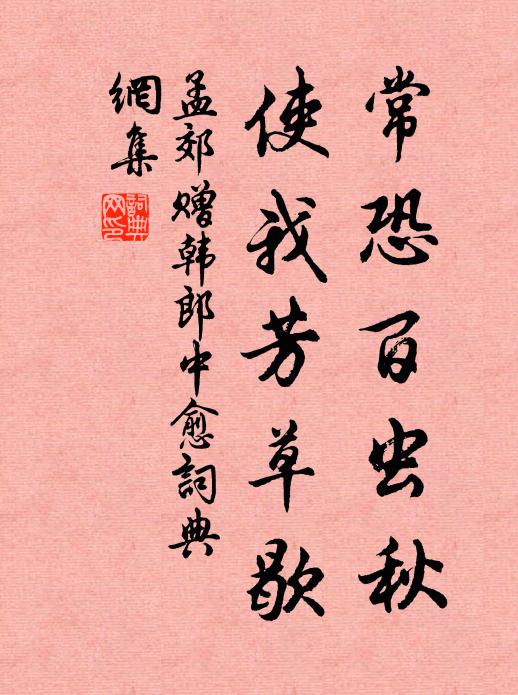 常恐百虫秋
使我芳草歇
孟郊赠韩郎中愈词典
網集
詞典
网印